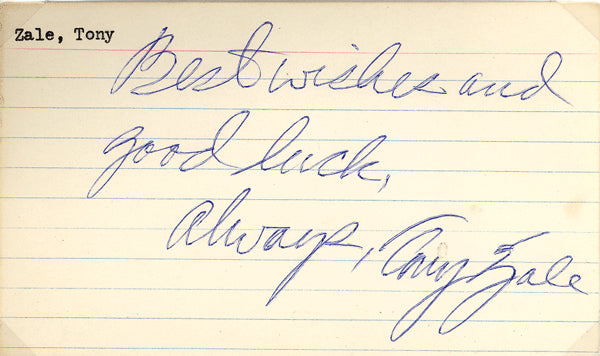 Zale, Tony
Best wishes and
good luck,
always, Tony Zale